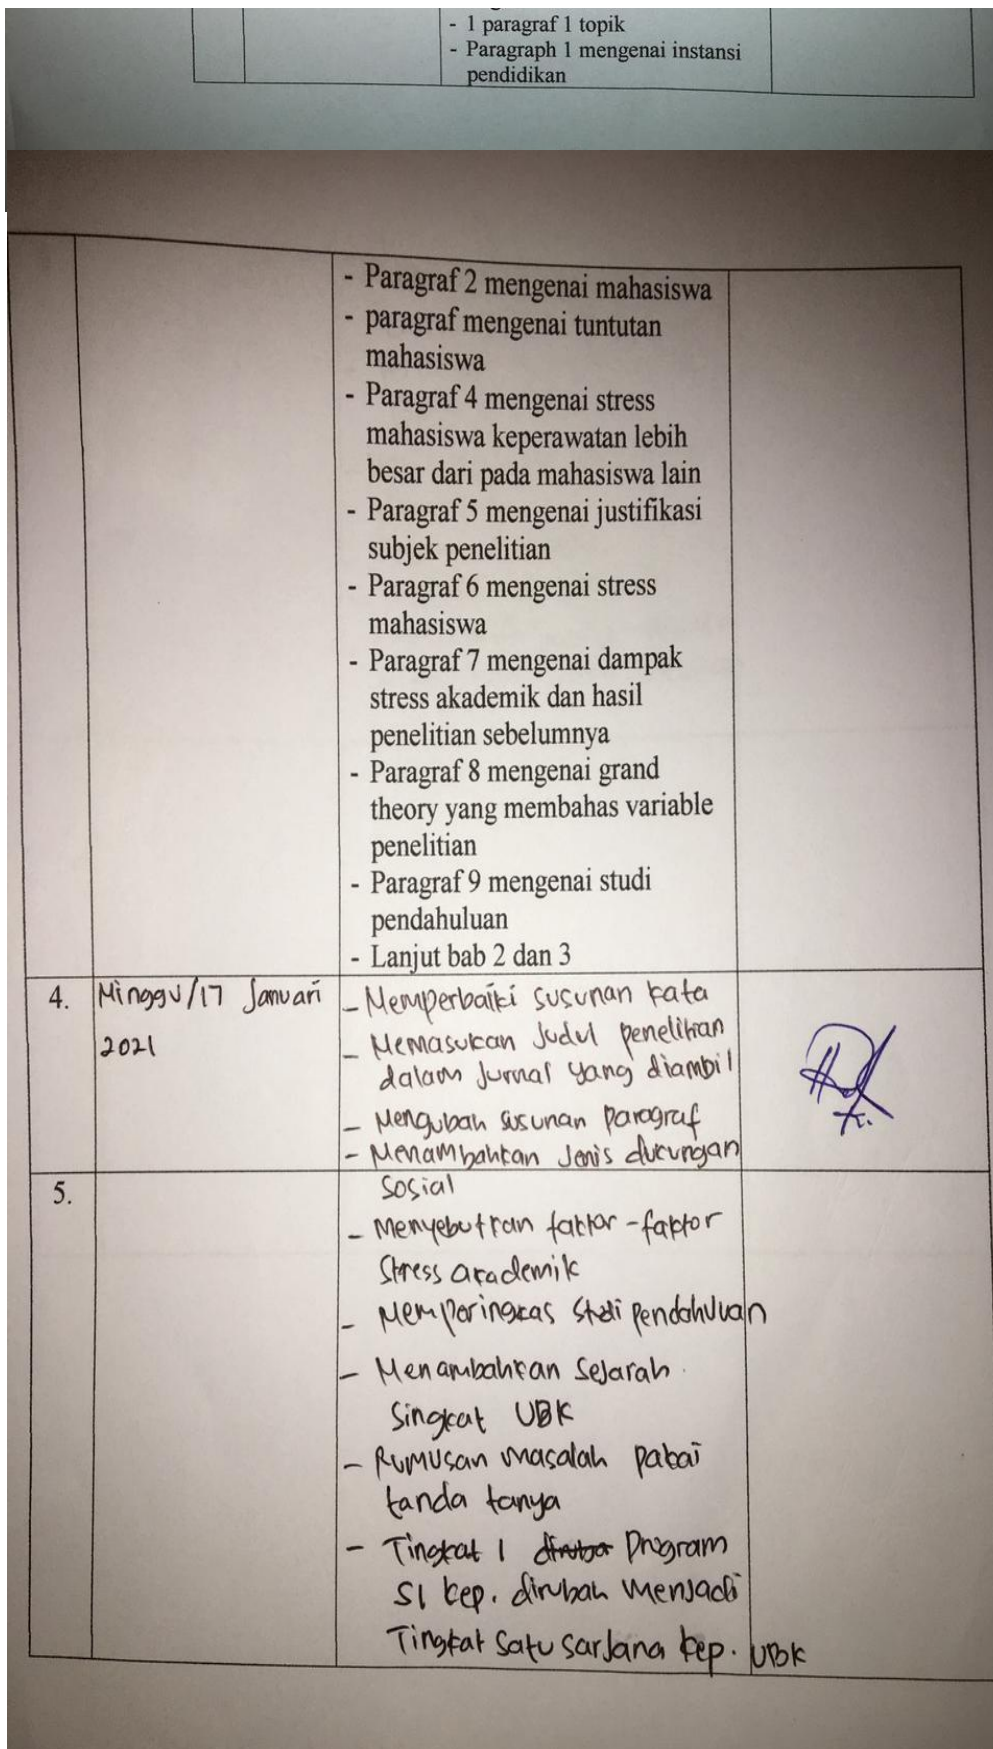 - 1 paragraf 1 topik
- Paragraph 1 mengenai instansi
pendidikan
- Paragraf 2 mengenai mahasiswa
- paragraf mengenai tuntutan
mahasiswa
- Paragraf 4 mengenai stress
mahasiswa keperawatan lebih
besar dari pada mahasiswa lain
- Paragraf 5 mengenai justifikasi
subjek penelitian
- Paragraf 6 mengenai stress
mahasiswa
- Paragraf 7 mengenai dampak
stress akademik dan hasil
penelitian sebelumnya
- Paragraf 8 mengenai grand
theory yang membahas variable
penelitian
- Paragraf 9 mengenai studi
pendahuluan
- Lanjut bab 2 dan 3
4. Minggu/17 Januari - Memperbaiki susunan kata
2021 - Memasukan Judul penelitian
dalam Jurnal yang diambil
- Mengubah susunan Paragraf
- Menambahkan Jenis dukungan
5. Sosial
- Menyebutkan faktor-faktor
Stress akademik
- Memperingkas Studi Pendahuluan
- Menambahkan Sejarah
Singkat UBK
- Rumusan masalah pakai
tanda tanya
- Tingkat 1 Program
S1 kep. dirubah Menjadi
Tingkat Satu Sarjana kep. UBK